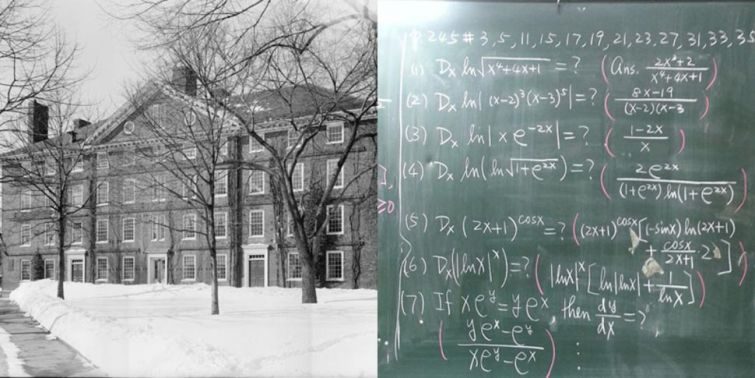 P. 245 # 3, 5, 11, 15, 17, 19, 21, 23, 27, 31, 33, 35
(1) Dx ln√(x⁴+4x+1) = ? (Ans. (2x³+2)/(x⁴+4x+1))
(2) Dx ln|(x-2)³(x-3)⁵| = ? ((8x-19)/((x-2)(x-3))
(3) Dx ln|x e^(-2x)| = ? ((1-2x)/x)
(4) Dx ln(ln√(1+e^(2x))) = ? (2e^(2x)/((1+e^(2x))ln(1+e^(2x))))
(5) Dx (2x+1)^(cosx) = ? ((2x+1)^(cosx)[(-sinx)ln(2x+1)
+ cosx/(2x+1) 2])
(6) Dx(|lnx|^x) = ? (|lnx|^x [ln|lnx| + 1/lnx])
(7) If xe^y = ye^x, then dy/dx = ?
((ye^x-e^y)/(xe^y-e^x))